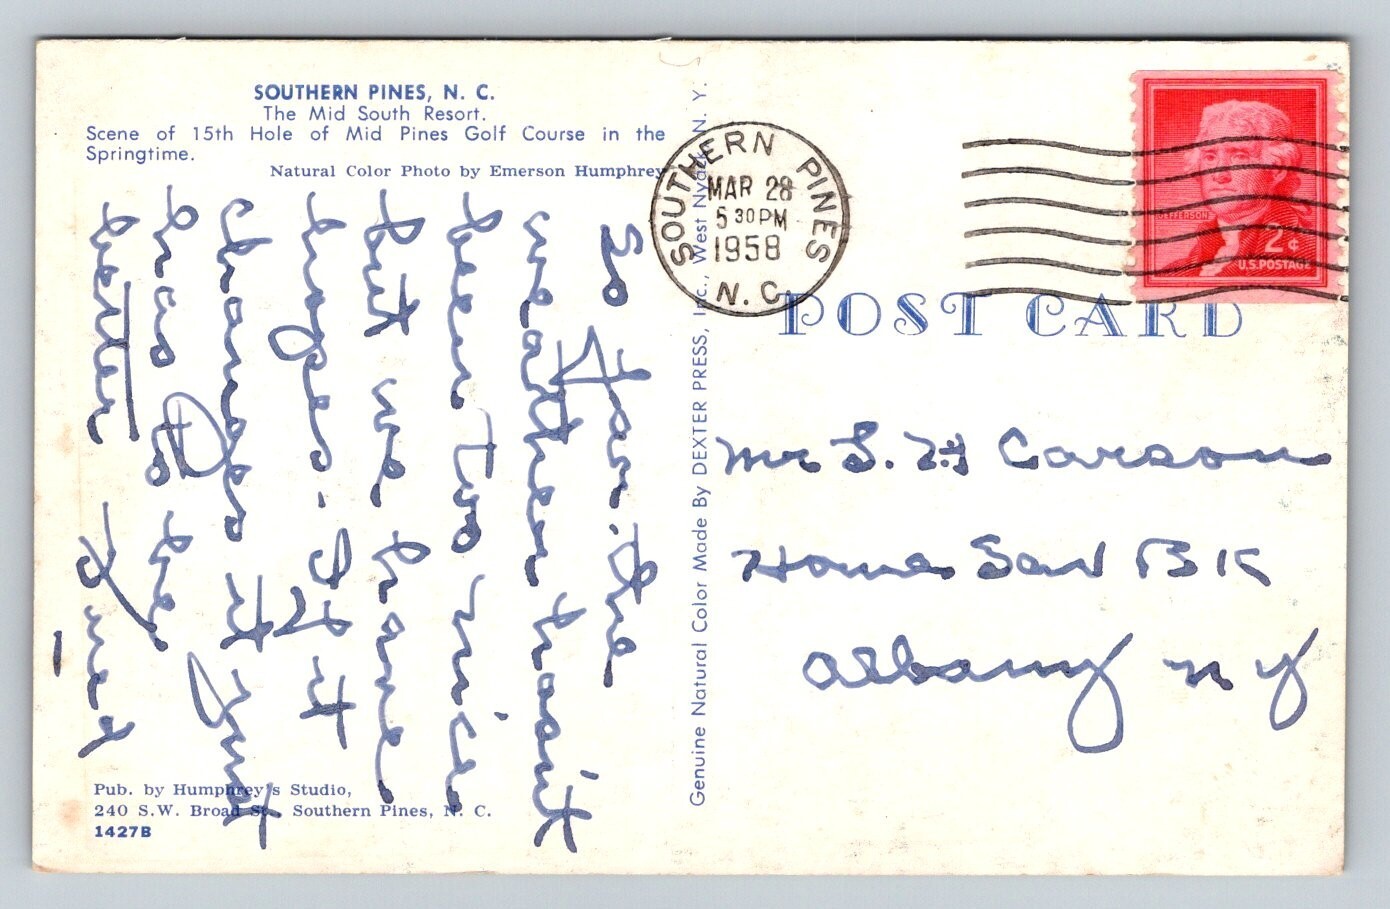 SOUTHERN PINES, N. C.
The Mid South Resort.
Scene of 15th Hole of Mid Pines Golf Course in the
Springtime.
Natural Color Photo by Emerson Humphrey
So far, the
weather hasn't
been too nice
but we have
hopes. If it
changes it just
has to be
better
Pub. by Humphrey's Studio,
240 S.W. Broad St., Southern Pines, N. C.
1427B
Genuine Natural Color Made By DEXTER PRESS, Inc., West Nyack, N. Y.
SOUTHERN PINES
MAR 28
5 30 PM
1958
N. C.
JEFFERSON
2¢
U.S. POSTAGE
POST CARD
Mr S. H Carson
Home Sav BK
Albany N Y